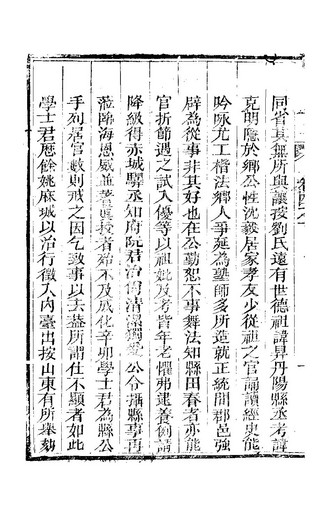 同省其無所與讓按劉氏遠有世德祖諱昇丹陽縣丞考諱
克明隱於鄉公性沈毅居家孝友少從祖之官誦讀經史能
吟咏尤工楷法鄉人爭延為塾師多所造就正統間郡邑強
辟為從事非其好也在公勤恕不事舞法知縣田春者亦能
官折節遇之試入優等以祖妣及考皆年老懼弗逮養例請
降級得赤城驛丞知府阮君治尚清潔 公令攝縣事再
蒞臨海恩威並著 授者殆不及成化辛卯學士君為縣公
手列居官數則戒之因乞致事以去蓋所謂仕不顯者如此
學士君歷餘姚麻城以治行徵入內臺出按山東有所舉劾